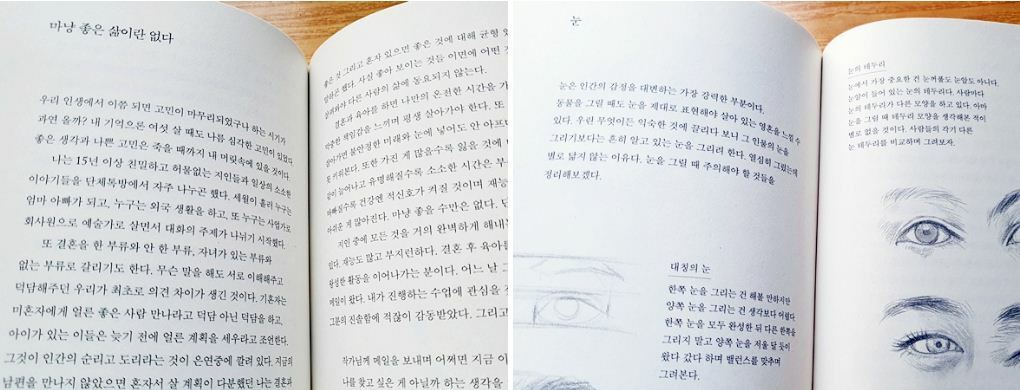 마냥 좋은 삶이란 없다
우리 인생에서 이쯤 되면 고민이 마무리되었구나 하는 시기가
과연 올까? 내 기억으론 여섯 살 때도 나름 심각한 고민이 있었다.
좋은 생각과 나쁜 고민은 죽을 때까지 내 머릿속에 있을 것이다.
나는 15년 이상 친밀하고 허물없는 지인들과 일상의 소소한
이야기들을 단체톡방에서 자주 나누곤 했다. 세월이 흘러 누구는
엄마 아빠가 되고, 누구는 외국 생활을 하고, 또 누구는 사업가로
회사원으로 예술가로 살면서 대화의 주제가 나뉘기 시작했다.
또 결혼을 한 부류와 안 한 부류, 자녀가 있는 부류와
없는 부류로 갈리기도 한다. 무슨 말을 해도 서로 이해해주고
덕담해주던 우리가 최초로 의견 차이가 생긴 것이다. 기혼자는
미혼자에게 얼른 좋은 사람 만나라고 덕담 아닌 덕담을 하고,
아이가 있는 이들은 늦기 전에 얼른 계획을 세우라고 조언한다.
그것이 인간의 순리고 도리라는 것이 은연중에 깔려 있다. 지금의
남편을 만나지 않았으면 혼자서 살 계획이 다분했던 나는 결혼과
좋은 것 그리고 혼자 있으면 좋은 것에 대해 균형 있
했다. 사실 좋아 보이는 것들 이면에 어떤 것
다른 사람의 삶에 동요되지 않는다.
결혼과 육아를 하면 나만의 온전한 시간을 가
책임감을 느끼며 평생 살아가야 한다. 또
불안정한 미래와 눈에 넣어도 안 아프
또한 가진 게 많을수록 잃을 것에 대
늘어나고 유명해질수록 소소한 시간은 부
건강엔 적신호가 켜질 것이며 재능
게 많아진다. 마냥 좋을 수만은 없다. 단
지인 중에 모든 것을 거의 완벽하게 해내는
있다. 재능도 많고 부지런하다. 결혼 후 육아를
왕성한 활동을 이어나가는 분이다. 어느 날 그
메일이 왔다. 내가 진행하는 수업에 관심을 갖
그분의 진솔함에 적잖이 감동받았다. 그리고
작가님께 메일을 보내며 어쩌면 지금 이
나를 찾고 싶은 게 아닐까 하는 생각을
눈
눈은 인간의 감정을 대변하는 가장 강력한 부분이다.
동물을 그릴 때도 눈을 제대로 표현해야 살아 있는 영혼을 느낄 수
있다. 우린 무엇이든 익숙한 것에 끌리다 보니 그 인물의 눈을
그리기보다는 흔히 알고 있는 눈을 그리려 한다. 열심히 그렸는데
별로 닮지 않는 이유다. 눈을 그릴 때 주의해야 할 것들을
정리해보겠다.
대칭의 눈
한쪽 눈을 그리는 건 해볼 만하지만
양쪽 눈을 그리는 건 생각보다 어렵다.
한쪽 눈을 모두 완성한 뒤 다른 한쪽을
그리지 말고 양쪽 눈을 저울 달 듯이
왔다 갔다 하며 밸런스를 맞추며
그려본다.
눈의 테두리
눈에서 가장 중요한 건 눈꺼풀도 눈알도 아니다.
눈알이 들어 있는 눈의 테두리다. 사람마다
눈의 테두리가 다른 모양을 하고 있다. 아마
눈을 그릴 때 테두리 모양을 생각해본 적이
별로 없을 것이다. 사람들의 각기 다른
눈 테두리를 비교하며 그려보자.